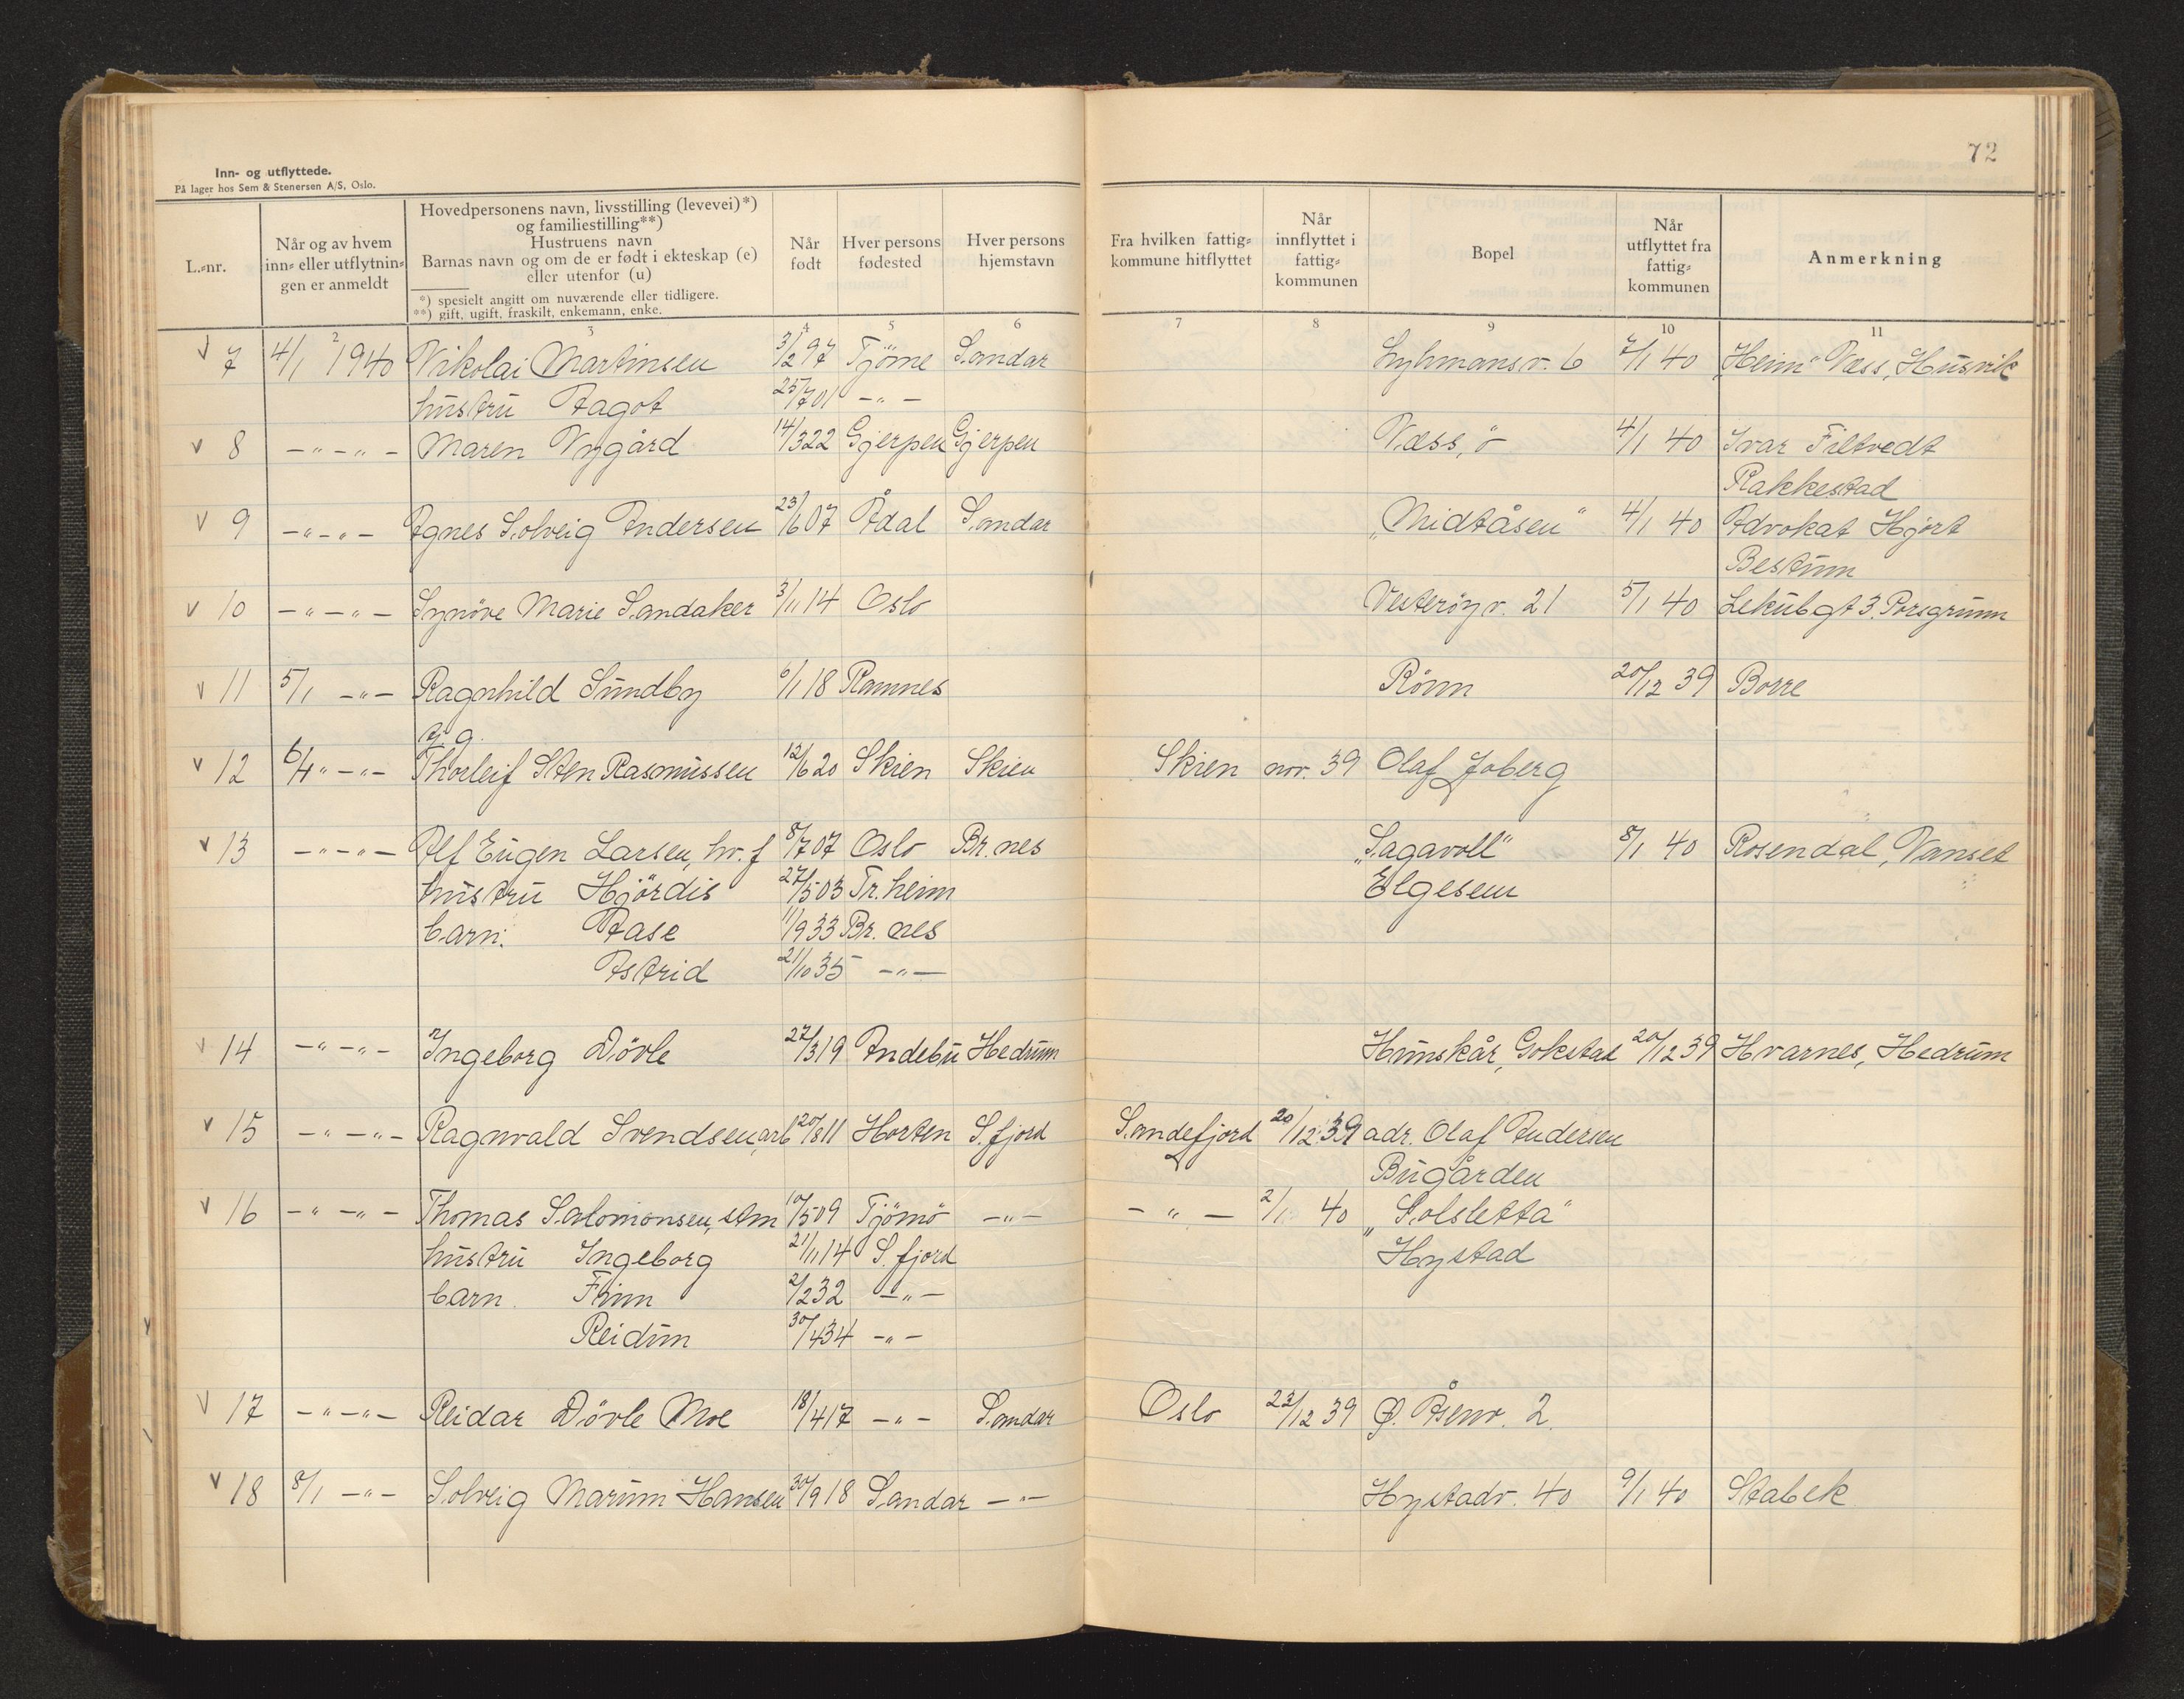 72
Inn- og utflyttede.
På lager hos Sem & Stenersen A/S, Oslo.
L.-nr. Når og av hvem inn- eller utflytnin-gen er anmeldt Hovedpersonens navn, livsstilling (levevei)*) og familiestilling**) Hustruens navn Barnas navn og om de er født i ekteskap (e) eller utenfor (u) *) spesielt angitt om nuværende eller tidligere. **) gift, ugift, fraskilt, enkemann, enke. Når født Hver persons fødested Hver persons hjemstavn Fra hvilken fattig-kommune hitflyttet Når innflyttet i fattig-kommunen Bopel Når utflyttet fra fattig-kommunen Anmerkning
2 3 4 5 6 7 8 9 10 11
v 7 4/1 1940 Nikolai Martinsen 3/2 97 Tjöme Sandar Lyhmansv. 6 7/1 40 "Heim" Væss, Husvik
hustru Aagot 25/7 01 -"-
v 8 -"-"- Maren Nygård 14/3 22 Gjerpen Gjerpen Væss, ö 4/1 40 Ivar Filtvedt
Rakkestad
v 9 -"-"- Agnes Solveig Andersen 23/6 07 Ådal Sandar „Midtåsen" 4/1 40 Advokat Hjort
Bestum
v 10 -"-"- Synöve Marie Sandaker 3/11 14 Oslo Vesteröyv. 21 5/1 40 Lekubgt 3. Porsgrunn
v 11 5/1 -"- Ragnhild Sundby 6/1 18 Ramnes Rönn 20/12 39 Borre
v 12 6/1 "-"- Thorleif Sten Rasmussen 12/6 20 Skien Skien Skien nov. 39 Olaf Joberg
v 13 -"-"- Alf Eugen Larsen, hv. f 8/7 07 Oslo Br.nes „Sagavoll" 8/1 40 Rosendal, Vanset
hustru Hjördis 27/5 03 Tr.heim Elgesem
barn: Aase 11/9 33 Br. nes
Astrid 21/10 35 -"-
v 14 -"-"- Ingeborg Dövle 27/3 19 Andebu Hedrum Hunskår, Gokstad 20/12 39 Hvarnes, Hedrum
v 15 -"-"- Ragnvald Svendsen, arb 20/8 11 Horten S.fjord Sandefjord 20/12 39 adr. Olaf Andersen
Bugården
v 16 -"-"- Thomas Salomonsen, stm 10/5 09 Tjömö -"- -"- 2/1 40 „Solsletta"
hustru Ingeborg 21/11 14 S. fjord Hystad
barn Finn 2/2 32 -"-
Reidun 30/4 34 -"-
v 17 -"-"- Reidar Dövle Moe 18/4 17 -"- Sandar Oslo 22/12 39 Ø. Åsenv. 2.
v 18 8/1 -"- Solveig Marum Hansen 30/9 18 Sandar -"- Hystadv. 40 9/1 40 Stabek